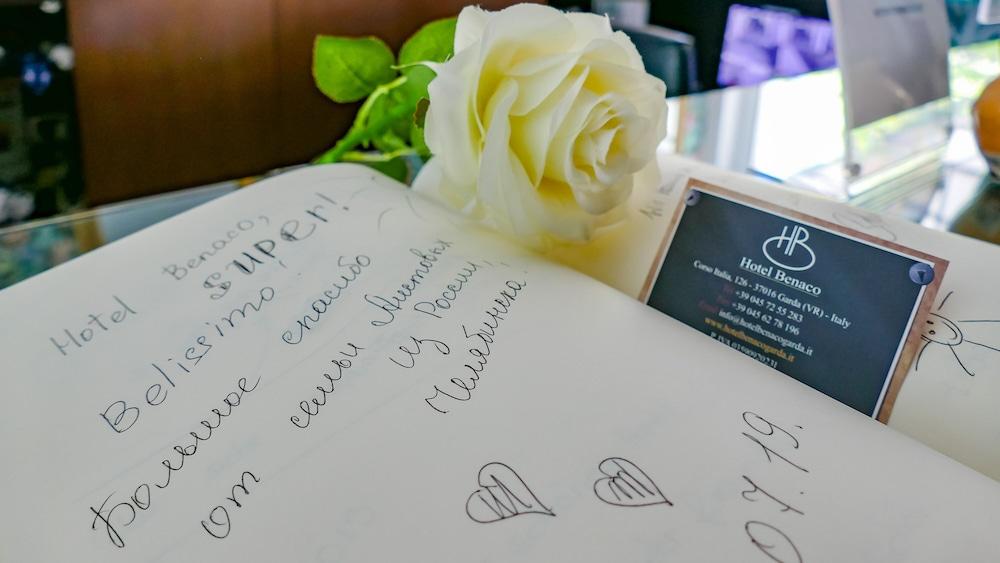 Hotel Benaco,
SUPER!
Belissimo
Большое спасибо
от семьи
из России,
Челябинска.
07.19.
HB
Hotel Benaco
Corso Italia, 126 - 37016 Garda (VR) - Italy
+39 045 72 55 283
+39 045 62 78 196
info@hotelbenacogarda.it
www.hotelbenacogarda.it
P. IVA